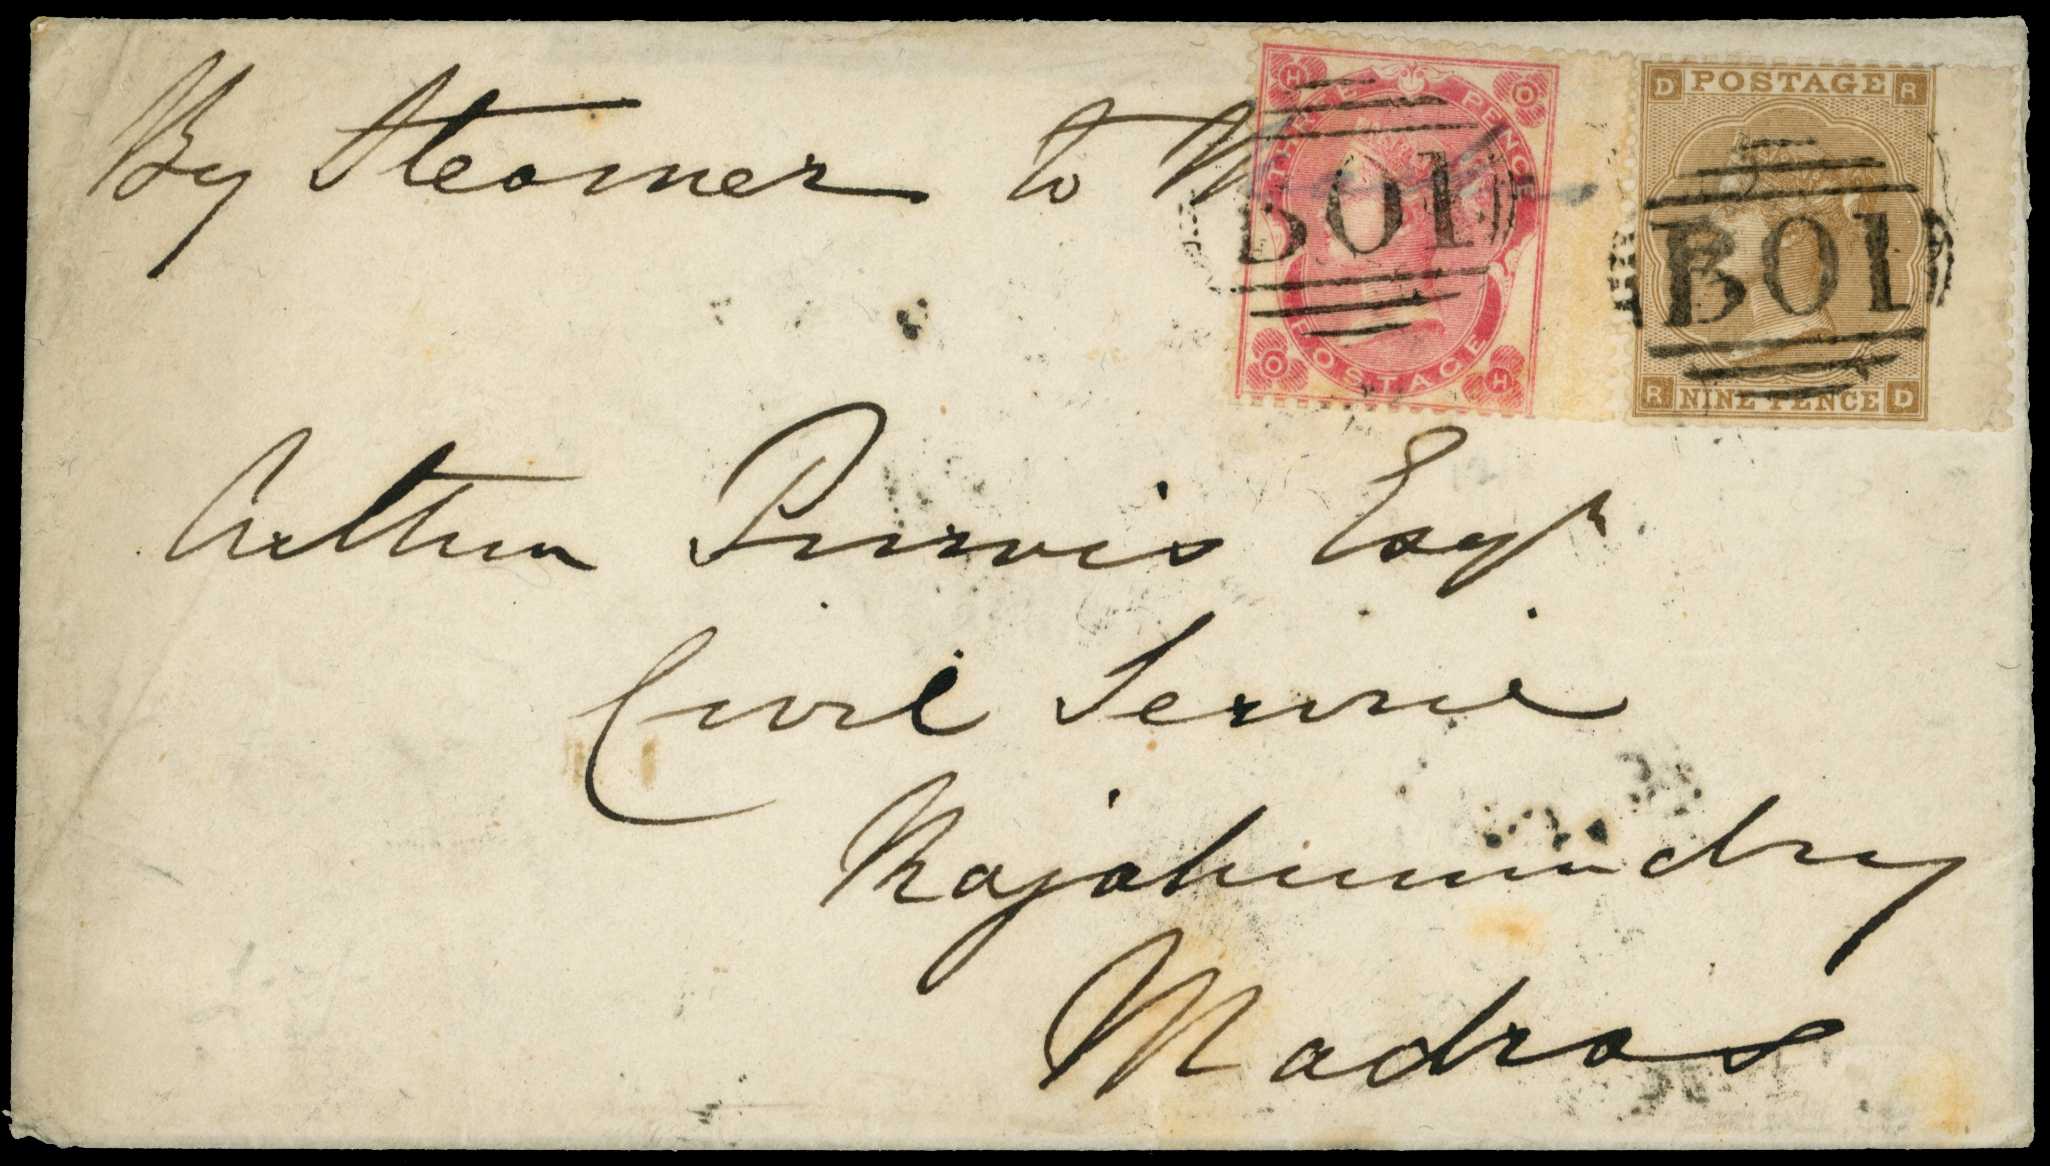 By Steamer to
H THREE PENCE O
B01
O POSTAGE H
D POSTAGE R
B01
R NINE PENCE D
Arthur Purvis Esqr
Civil Service
Rajahmundry
Madras